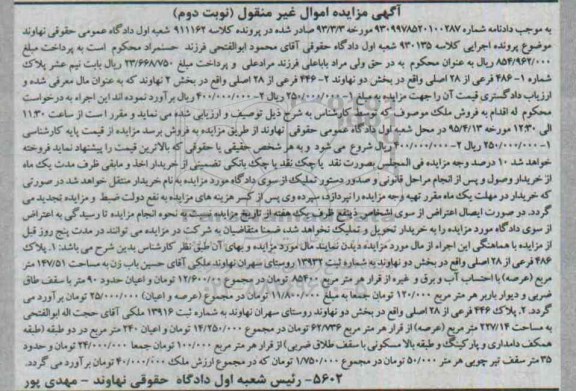 آگهی مزایده اموال غیر منقول (نوبت دوم)
به موجب دادنامه شماره ۹۳۰۹۹۷۸۵۲۰۱۰۰۲۸۷ مورخه ۹۳/۳/۳ صادر شده در پرونده کلاسه ۹۱۱۱۶۲ شعبه اول دادگاه عمومی حقوقی نهاوند
موضوع پرونده اجرایی کلاسه ۹۳۰۱۳۵ شعبه اول دادگاه حقوقی آقای محمود ابوالفتحی فرزند حسنمراد محکوم است به پرداخت مبلغ
۸۵۴/۹۶۲/۰۰۰ ریال به عنوان محکوم به در حق ولی مراد باباعلی فرزند مرادعلی و پرداخت مبلغ ۲۳/۶۶۸/۷۵۰ ریال بابت نیم عشر پلاک
شماره ۱-۴۸۶ فرعی از ۲۸ اصلی واقع در بخش دو نهاوند ۲-۴۴۶ فرعی از ۲۸ اصلی واقع در بخش ۲ نهاوند که به عنوان مال معرفی شده و
ارزیاب دادگستری قیمت آن را جهت مزایده به مبلغ ۱-۲۵۰/۰۰۰/۰۰۰ ریال ۲-۴۰۰/۰۰۰/۰۰۰ ریال برآورد نموده اند این اجراء به درخواست
محکوم له اقدام به فروش ملک موصوف که توسط کارشناس به شرح ذیل توصیف و ارزیابی شده می نماید و مقرر است از ساعت ۱۱:۳۰
الی ۱۲:۳۰ مورخه ۹۵/۴/۱۳ در محل شعبه اول دادگاه عمومی حقوقی نهاوند از طریق مزایده به فروش برسد مزایده از قیمت پایه کارشناسی
۱-۲۵۰/۰۰۰/۰۰۰ ریال ۲-۴۰۰/۰۰۰/۰۰۰ ریال شروع می شود و به هر شخص حقیقی یا حقوقی که بالاترین قیمت را پیشنهاد نماید فروخته
خواهد شد ۱۰ درصد وجه مزایده فی المجلس بصورت نقد یا چک نقد یا چک بانکی تضمینی از خریدار اخذ و مابقی ظرف مدت یک ماه
از خریدار وصول و پس از انجام مراحل قانونی و صدور دستور تملیک از سوی دادگاه مورد مزایده به نام خریدار منتقل خواهد شد در صورتی
که خریدار در مهلت یک ماه مقرر تهیه وجه مزایده را نپردازد، سپرده وی پس از کسر هزینه های مزایده به نفع دولت ضبط و مزایده تجدید می
گردد. در صورت ایصال اعتراض از سوی اشخاص ذینفع ظرف یک هفته از تاریخ مزایده نسبت به نحوه انجام مزایده تا رسیدگی به اعتراض
از سوی دادگاه مورد مزایده را به خریدار تحویل و تملیک نخواهد شد، ضمنا متقاضیان به شرکت در مزایده می توانند در مدت پنج روز قبل
از مزایده با هماهنگی این اجراء از مال مورد مزایده دیدن نمایند. مال مورد مزایده و بهای آن طبق نظر کارشناس بدین شرح می باشد: ۱. پلاک
۴۸۶ فرعی از ۲۸ اصلی واقع در بخش دو نهاوند به شماره ثبت ۱۳۹۳۲ روستای سهران نهاوند ملکی آقای حسین باب زن به مساحت ۱۴۷/۵۱ متر
مربع (عرصه) با احتساب آب و برق و غیره از قرار هر متر مربع ۸۵۴۰۰ تومان در مجموع ۱۲/۶۰۰/۰۰۰ تومان و اعیان حدود ۹۰ متر با سقف طاق
ضربی و دیوار باربر هر متر مربع ۱۲۰/۰۰۰ تومان جمعا به مبلغ ۱۱/۸۰۰/۰۰۰ تومان در مجموع (عرصه و اعیان) ۲۵/۰۰۰/۰۰۰ تومان برآورد می
گردد. ۲. پلاک ۴۴۶ فرعی از ۲۸ اصلی واقع در بخش دو نهاوند روستای سهران نهاوند به شماره ثبت ۱۳۹۱۶ ملکی آقای حجت اله ابوالفتحی
به مساحت ۲۲۷/۱۴ متر مربع (عرصه) از قرار هر متر مربع ۶۲/۷۳۶ تومان در مجموع ۱۴/۲۵۰/۰۰۰ تومان و اعیان ۲۴۰ متر مربع در دو طبقه (طبقه
همکف دامداری و پارکینگ و طبقه بالا مسکونی با سقف طلاق ضربی) از قرار هر متر مربع ۱۰۰/۰۰۰ تومان جمعا ۲۴/۰۰۰/۰۰۰ تومان و حدود
۳۵ متر سقف تیر چوبی هر متر ۵۰/۰۰۰ تومان در مجموع ۱/۷۵۰/۰۰۰ تومان که در مجموع ارزش ملک ۴۰/۰۰۰/۰۰۰ تومان برآورد می گردد.
۵۶۰۲- رئیس شعبه اول دادگاه حقوقی نهاوند - مهدی پور